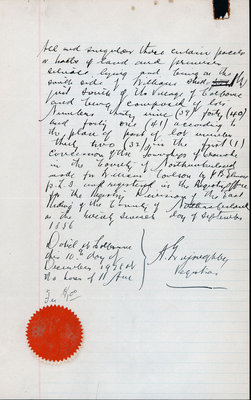 All and singular those certain parcels
or tracts of land and premises
situate lying and being on the
south side of William Street
just South of the Village of Colborne
and being composed of lots
Numbers thirty nine (39) forty (40)
and forty one (41) according to
the plan of part of lot number
thirty two (32) in the first (1)
concession of the Township of Cramahe
in the County of Northumberland
made for William Coulson by
P.L.S. and registered in the Registry Office
for the Registry Division of the East
Riding of the County of Northumberland
on the twenty seventh day of September
1856
Dated at Colborne
this 10th day of
December
at the hour of 11 A.M.
A. E.
Registrar
Fee